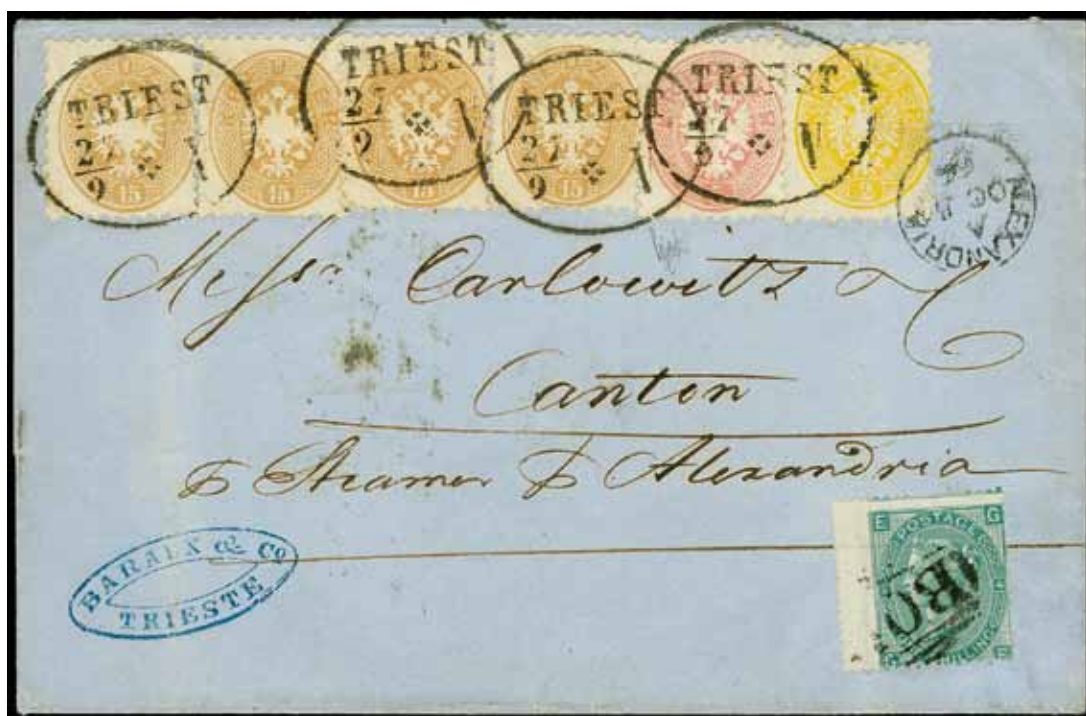 TRIEST
27
9
V
TRIEST
27
9
V
TRIEST
27
9
TRIEST
27
9
V
15
15
15
15
2
ALEXANDRIA
A
OC
Messrs Carlowitz & C
Canton
p Steamer p Alexandria
BARAUX & Co
TRIESTE
E G
POSTAGE
B01
G E